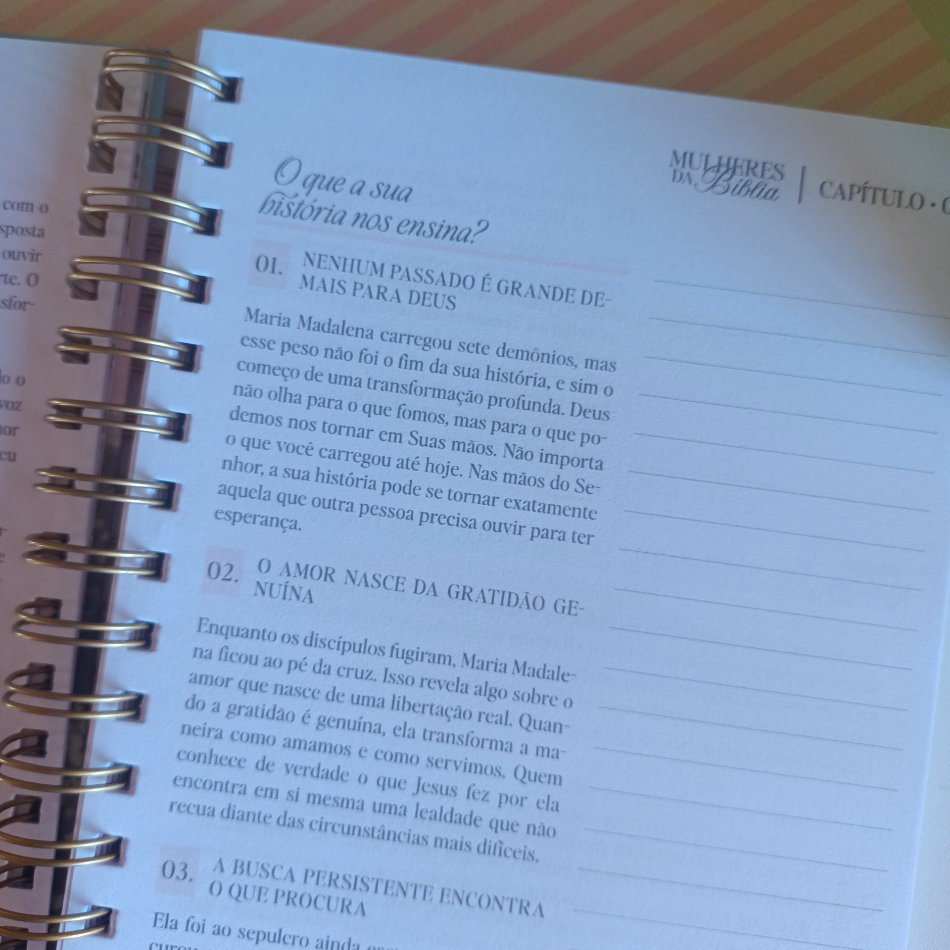 com o
sposta
ouvir
rte. O
sfor-
do o
voz
nor
eu
MULHERES
DA Bíblia | CAPÍTULO •
O que a sua
história nos ensina?
01. NENHUM PASSADO É GRANDE DE-
MAIS PARA DEUS
Maria Madalena carregou sete demônios, mas
esse peso não foi o fim da sua história, e sim o
começo de uma transformação profunda. Deus
não olha para o que fomos, mas para o que po-
demos nos tornar em Suas mãos. Não importa
o que você carregou até hoje. Nas mãos do Se-
nhor, a sua história pode se tornar exatamente
aquela que outra pessoa precisa ouvir para ter
esperança.
02. O AMOR NASCE DA GRATIDÃO GE-
NUÍNA
Enquanto os discípulos fugiram, Maria Madale-
na ficou ao pé da cruz. Isso revela algo sobre o
amor que nasce de uma libertação real. Quan-
do a gratidão é genuína, ela transforma a ma-
neira como amamos e como servimos. Quem
conhece de verdade o que Jesus fez por ela
encontra em si mesma uma lealdade que não
recua diante das circunstâncias mais difíceis.
03. A BUSCA PERSISTENTE ENCONTRA
O QUE PROCURA
Ela foi ao sepulcro ainda